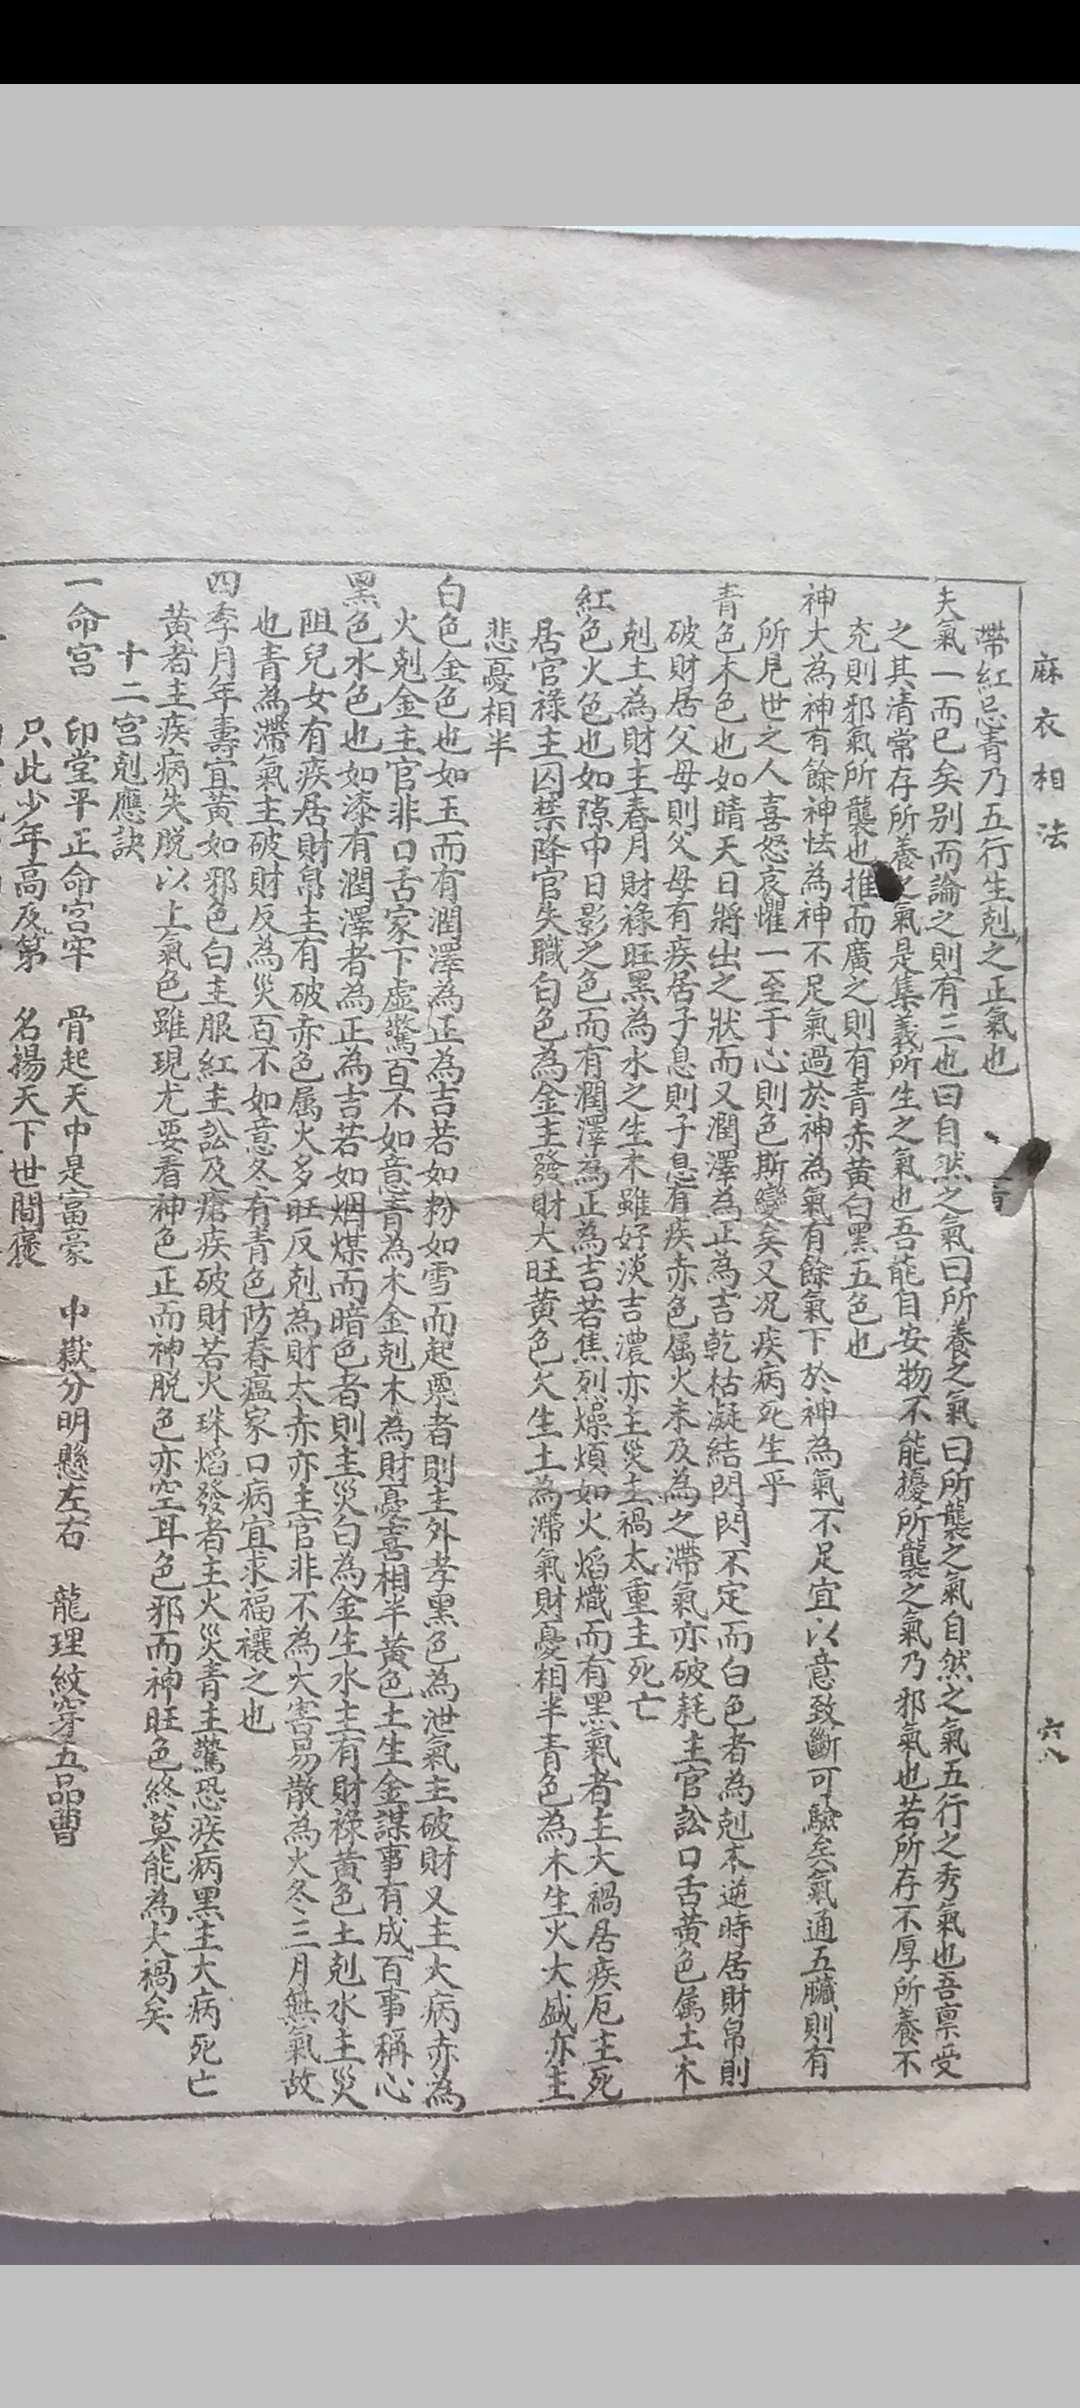 麻衣相法
六八
滯紅忌青乃五行生剋之正氣也
夫氣一而已矣别而論之則有三也曰自然之氣曰所養之氣曰所襲之氣自然之氣五行之秀氣也吾禀受
之其清常存所養之氣是集義所生之氣也吾能自安物不能擾所襲之氣乃邪氣也若所存不厚所養不
充則邪氣所襲也推而廣之則有青赤黄白黑五色也
神大為神有餘神怯為神不足氣過於神為氣有餘氣下於神為氣不足宜以意致斷可驗矣氣通五臟則有
所見世之人喜怒哀懼一至于心則色斯變矣又况疾病死生乎
青色木色也如晴天日將出之狀而又潤澤為正為吉乾枯凝結閃閃不定而白色者為剋木逆時居財帛則
破財居父母則父母有疾居子息則子息有疾赤色屬火未及為之滯氣亦破耗主官訟口舌黄色属土木
剋土為財主春月財祿旺黑為水之生木雖好淡吉濃亦主災主禍太重主死亡
紅色火色也如隙中日影之色而有潤澤為正為吉若焦烈燥煩如火焰熾而有黑氣者主大禍居疾厄主死
居官祿主囚禁降官失職白色為金主發財大旺黄色火生土為滯氣財憂相半青色為木生火大盛亦主
悲憂相半
白色金色也如玉而有潤澤為正為吉若如粉如雪而起粟者則主外孝黑色為泄氣主破財又主大病赤為
火剋金主官非口舌家下虚驚百不如意青為木金剋木為財憂喜相半黄色土生金謀事有成百事稱心
黑色水色也如漆有潤澤者為正為吉若如烟煤而暗色者則主災白為金生水主有財祿黄色土剋水主災
阻兒女有疾居財帛主有破赤色属火多旺反剋為財太赤亦主官非不為大害易散為火冬三月無氣故
也青為滯氣主破財反為災百不如意冬有青色防春瘟家口病宜求福禳之也
四季月年壽宜黄如邪色白主服紅主訟及瘡疾破財若火珠焰發者主火災青主驚恐疾病黑主大病死亡
黄者主疾病失脱以上氣色雖現尤要看神色正而神脱色亦空耳色邪而神旺色終莫能為大禍矣
十二宮剋應訣
一命宮 印堂平正命宮牢 骨起天中是富豪 中嶽分明懸左右 龍理紋穿五品曹
只此少年高及第 名揚天下世間褒